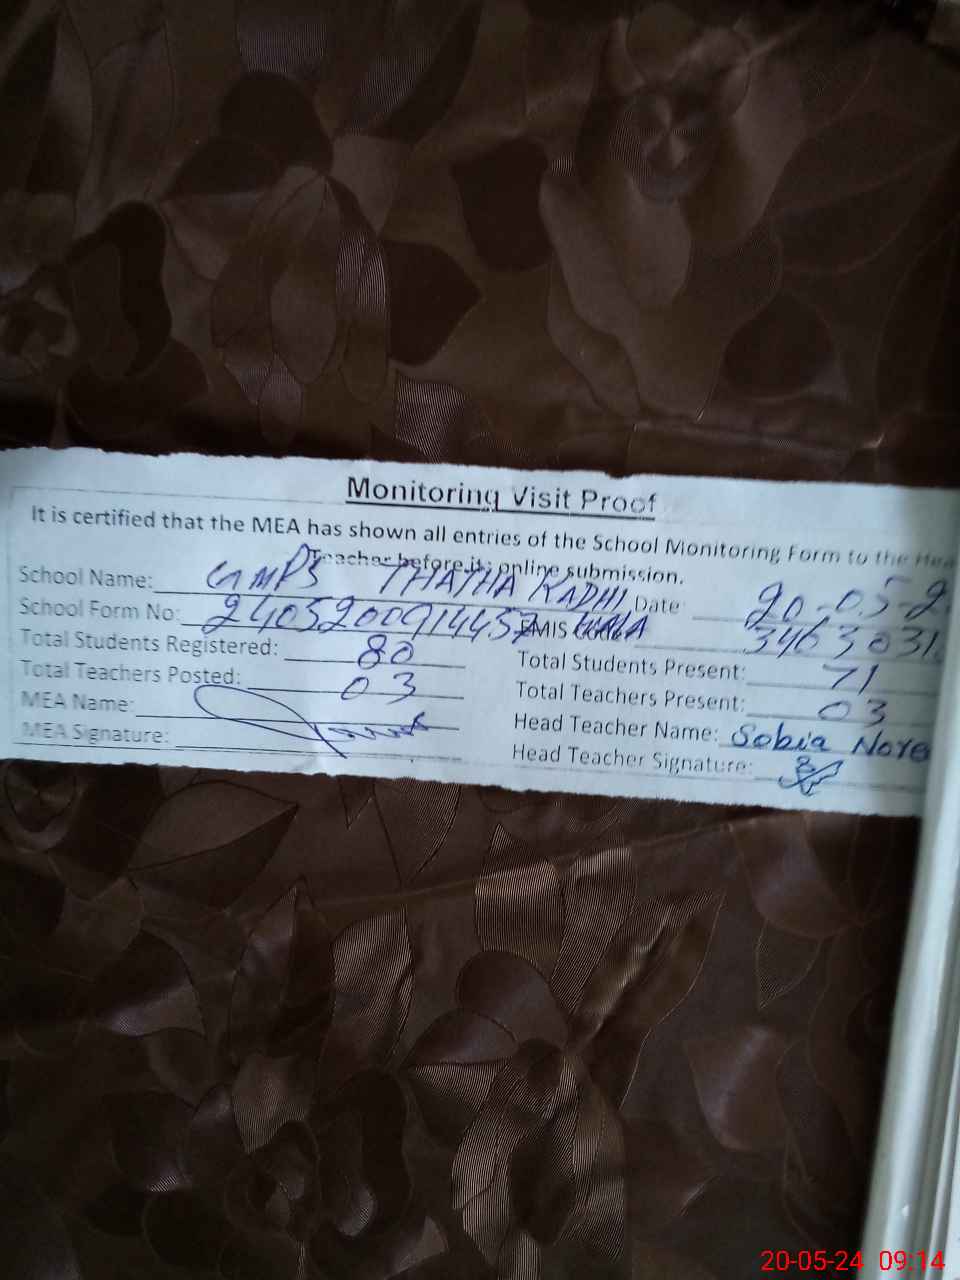 Monitoring Visit Proof
It is certified that the MEA has shown all entries of the School Monitoring Form to the Hea
Teacher before its online submission.
School Name: GMPS THATHA KADHI WALA Date 20-05-2
School Form No: EMIS 3463031
Total Students Registered: 80 Total Students Present: 71
Total Teachers Posted: 03 Total Teachers Present: 03
MEA Name: Head Teacher Name: Sobia Nore
MEA Signature: Head Teacher Signature:
20-05-24 09:14